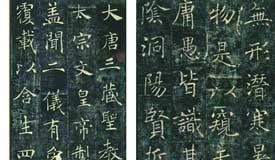 大唐三藏聖教
太宗文皇帝製
蓋聞二儀有
覆載以含生四
無形潛寒暑
物是以窺天
庸愚皆識其
陰洞陽賢哲